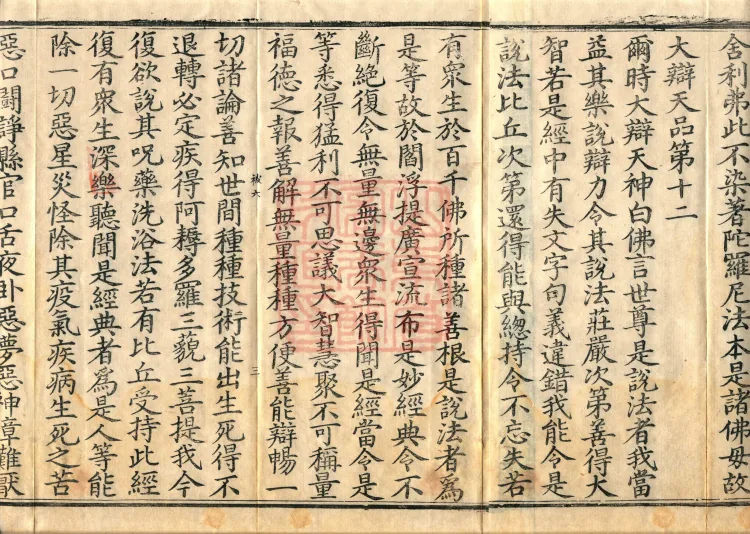 舍利弗此不染著陀羅尼法本是諸佛毋故
大辯天品第十二
爾時大辯天神白佛言世尊是說法者我當
益其樂說辯力令其說法莊嚴次第善得大
智若是經中有失文字句義違錯我能令是
說法比丘次第還得能與總持令不忘失若
有衆生於百千佛所種諸善根是說法者爲
是等故於閻浮提廣宣流布是妙經典令不
斷絕復令無量無邊衆生得聞是經當令是
等悉得猛利不可思議大智慧聚不可稱量
福德之報善解無量種種方便善能辯暢一
被六 三
切諸論善知世間種種技術能出生死得不
退轉必定疾得阿耨多羅三藐三菩提我今
復欲說其呪藥洗浴法若有比丘受持此經
復有衆生深樂聽聞是經典者爲是人等能
除一切惡星災怪除其疫氣疾病生死之苦
惡口鬭諍縣官口舌夜卧惡夢惡神障難厭